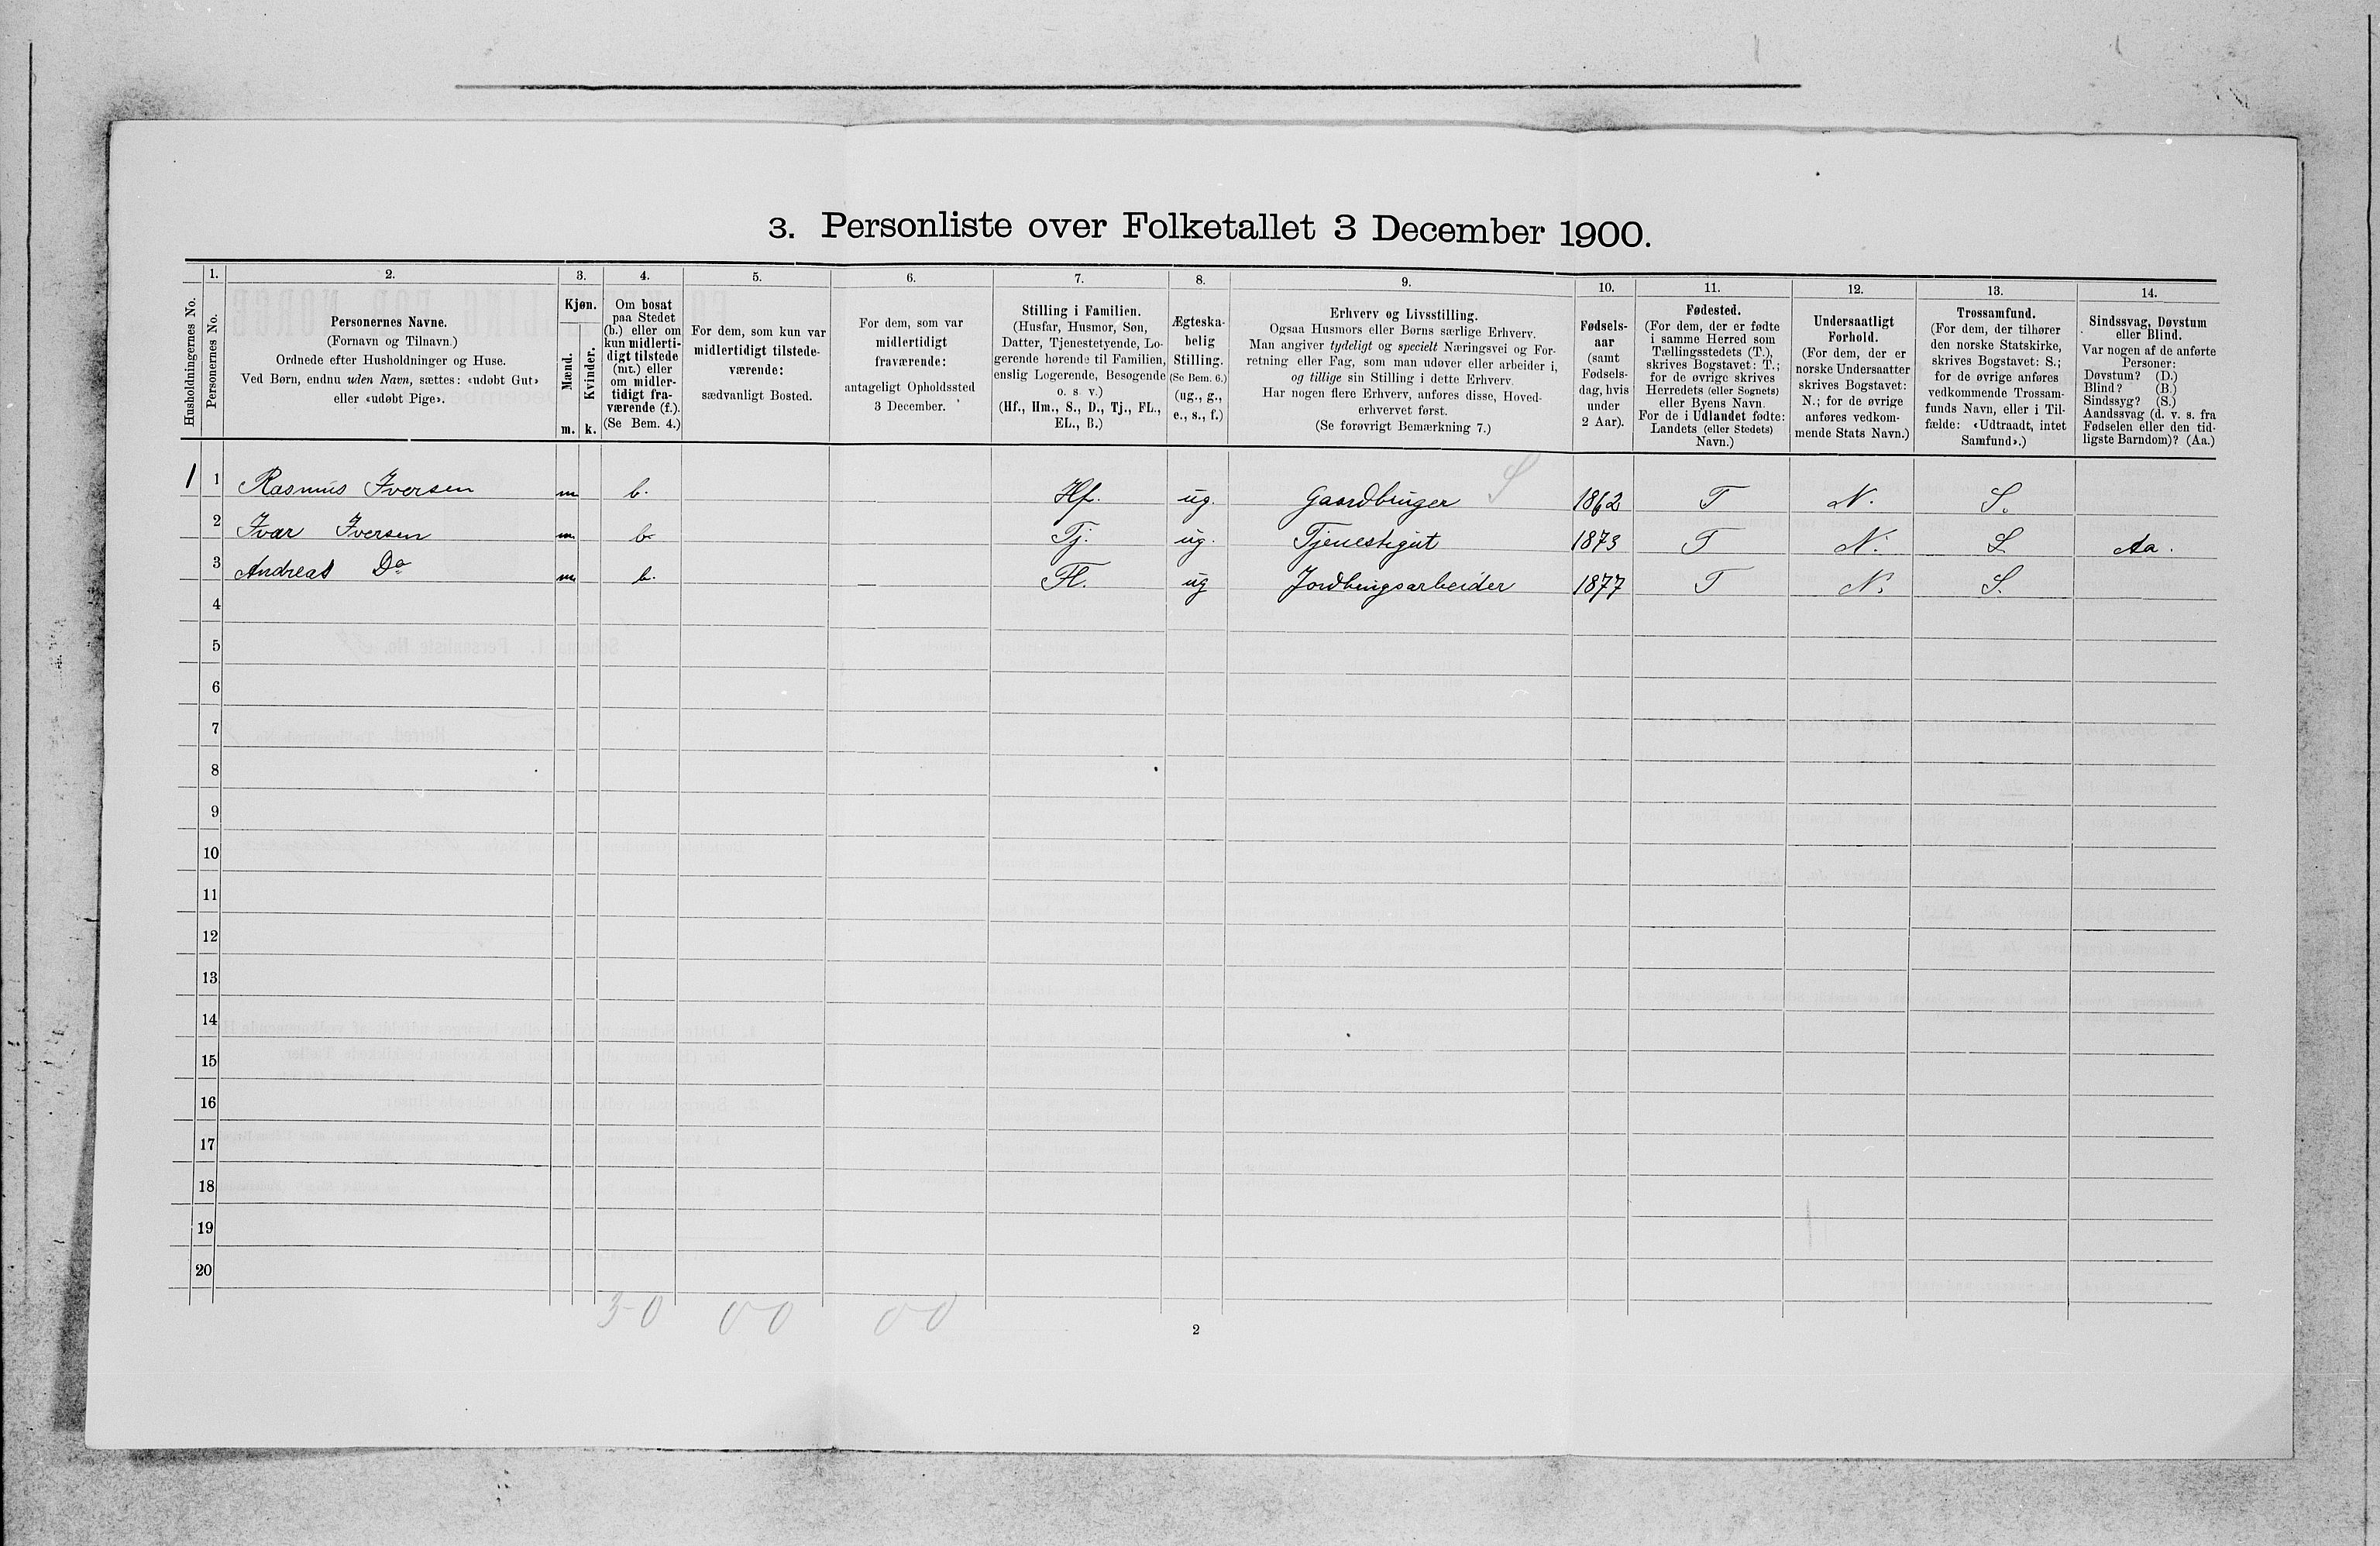 3. Personliste over Folketallet 3 December 1900.
Husholdningernes No.
1.
Personernes No.
2.
Personernes Navne.
(Fornavn og Tilnavn.)
Ordnede efter Husholdninger og Huse.
Ved Børn, endnu uden Navn, sættes: «udøbt Gut»
eller «udøbt Pige».
3.
Kjøn.
Mænd.
Kvinder.
m. k.
4.
Om bosat
paa Stedet
(b.) eller om
kun midlerti-
digt tilstede
(mt.) eller
om midler-
tidigt fra-
værende (f.).
(Se Bem. 4.)
5.
For dem, som kun var
midlertidigt tilstede-
værende:
sædvanligt Bosted.
6.
For dem, som var
midlertidigt
fraværende:
antageligt Opholdssted
3 December.
7.
Stilling i Familien.
(Husfar, Husmor, Søn,
Datter, Tjenestetyende, Lo-
gerende hørende til Familien,
enslig Logerende, Besøgende
o. s. v.)
(Hf., Hm., S., D., Tj., FL.,
EL., B.)
8.
Ægteska-
belig
Stilling.
(Se Bem. 6.)
(ug., g.,
e., s., f.)
9.
Erhverv og Livsstilling.
Ogsaa Husmors eller Børns særlige Erhverv.
Man angiver tydeligt og specielt Næringsvei og For-
retning eller Fag, som man udøver eller arbeider i,
og tillige sin Stilling i dette Erhverv.
Har nogen flere Erhverv, anføres disse, Hoved-
erhvervet først.
(Se forøvrigt Bemærkning 7.)
10.
Fødsels-
aar
(samt
Fødsels-
dag, hvis
under
2 Aar).
11.
Fødested.
(For dem, der er fødte
i samme Herred som
Tællingsstedets (T.),
skrives Bogstavet: T.;
for de øvrige skrives
Herredets (eller Sognets)
eller Byens Navn.
For de i Udlandet fødte:
Landets (eller Stedets)
Navn.)
12.
Undersaatligt
Forhold.
(For dem, der er
norske Undersaatter
skrives Bogstavet:
N.; for de øvrige
anføres vedkom-
mende Stats Navn.)
13.
Trossamfund.
(For dem, der tilhører
den norske Statskirke,
skrives Bogstavet: S.;
for de øvrige anføres
vedkommende Trossam-
funds Navn, eller i Til-
fælde: «Udtraadt, intet
Samfund».)
14.
Sindssvag, Døvstum
eller Blind.
Var nogen af de anførte
Personer:
Døvstum? (D.)
Blind? (B.)
Sindssyg? (S.)
Aandssvag (d. v. s. fra
Fødselen eller den tid-
ligste Barndom)? (Aa.)
1 1 Rasmus Iversen m b. Hf. ug. Gaardbruger S 1862 T N. S.
2 Ivar Iversen m b. Tj. ug. Tjenestegut 1873 T N. S Aa.
3 Andreas Do m b. — Fl. ug Jordbrugsarbeider 1877 T N. S.
4
5
6
7
8
9
10
11
12
13
14
15
16
17
18
19
20
3-0 00 00
2